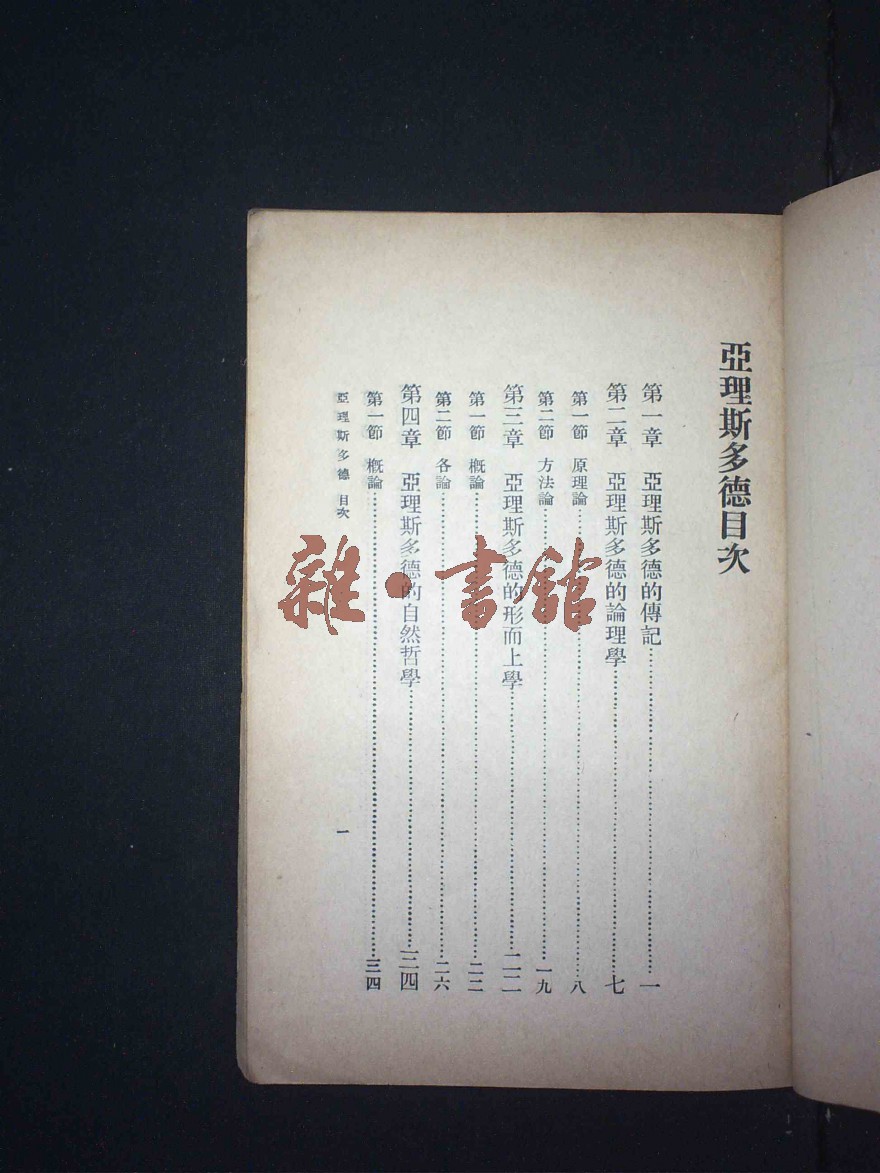 亞理斯多德目次
第一章　亞理斯多德的傳記…………一
第二章　亞理斯多德的論理學…………七
第一節　原理論…………八
第二節　方法論…………一九
第三章　亞理斯多德的形而上學…………二二
第一節　概論…………二二
第二節　各論…………二六
第四章　亞理斯多德的自然哲學…………三四
第一節　概論…………三四
亞理斯多德　目次
一
雜·書館